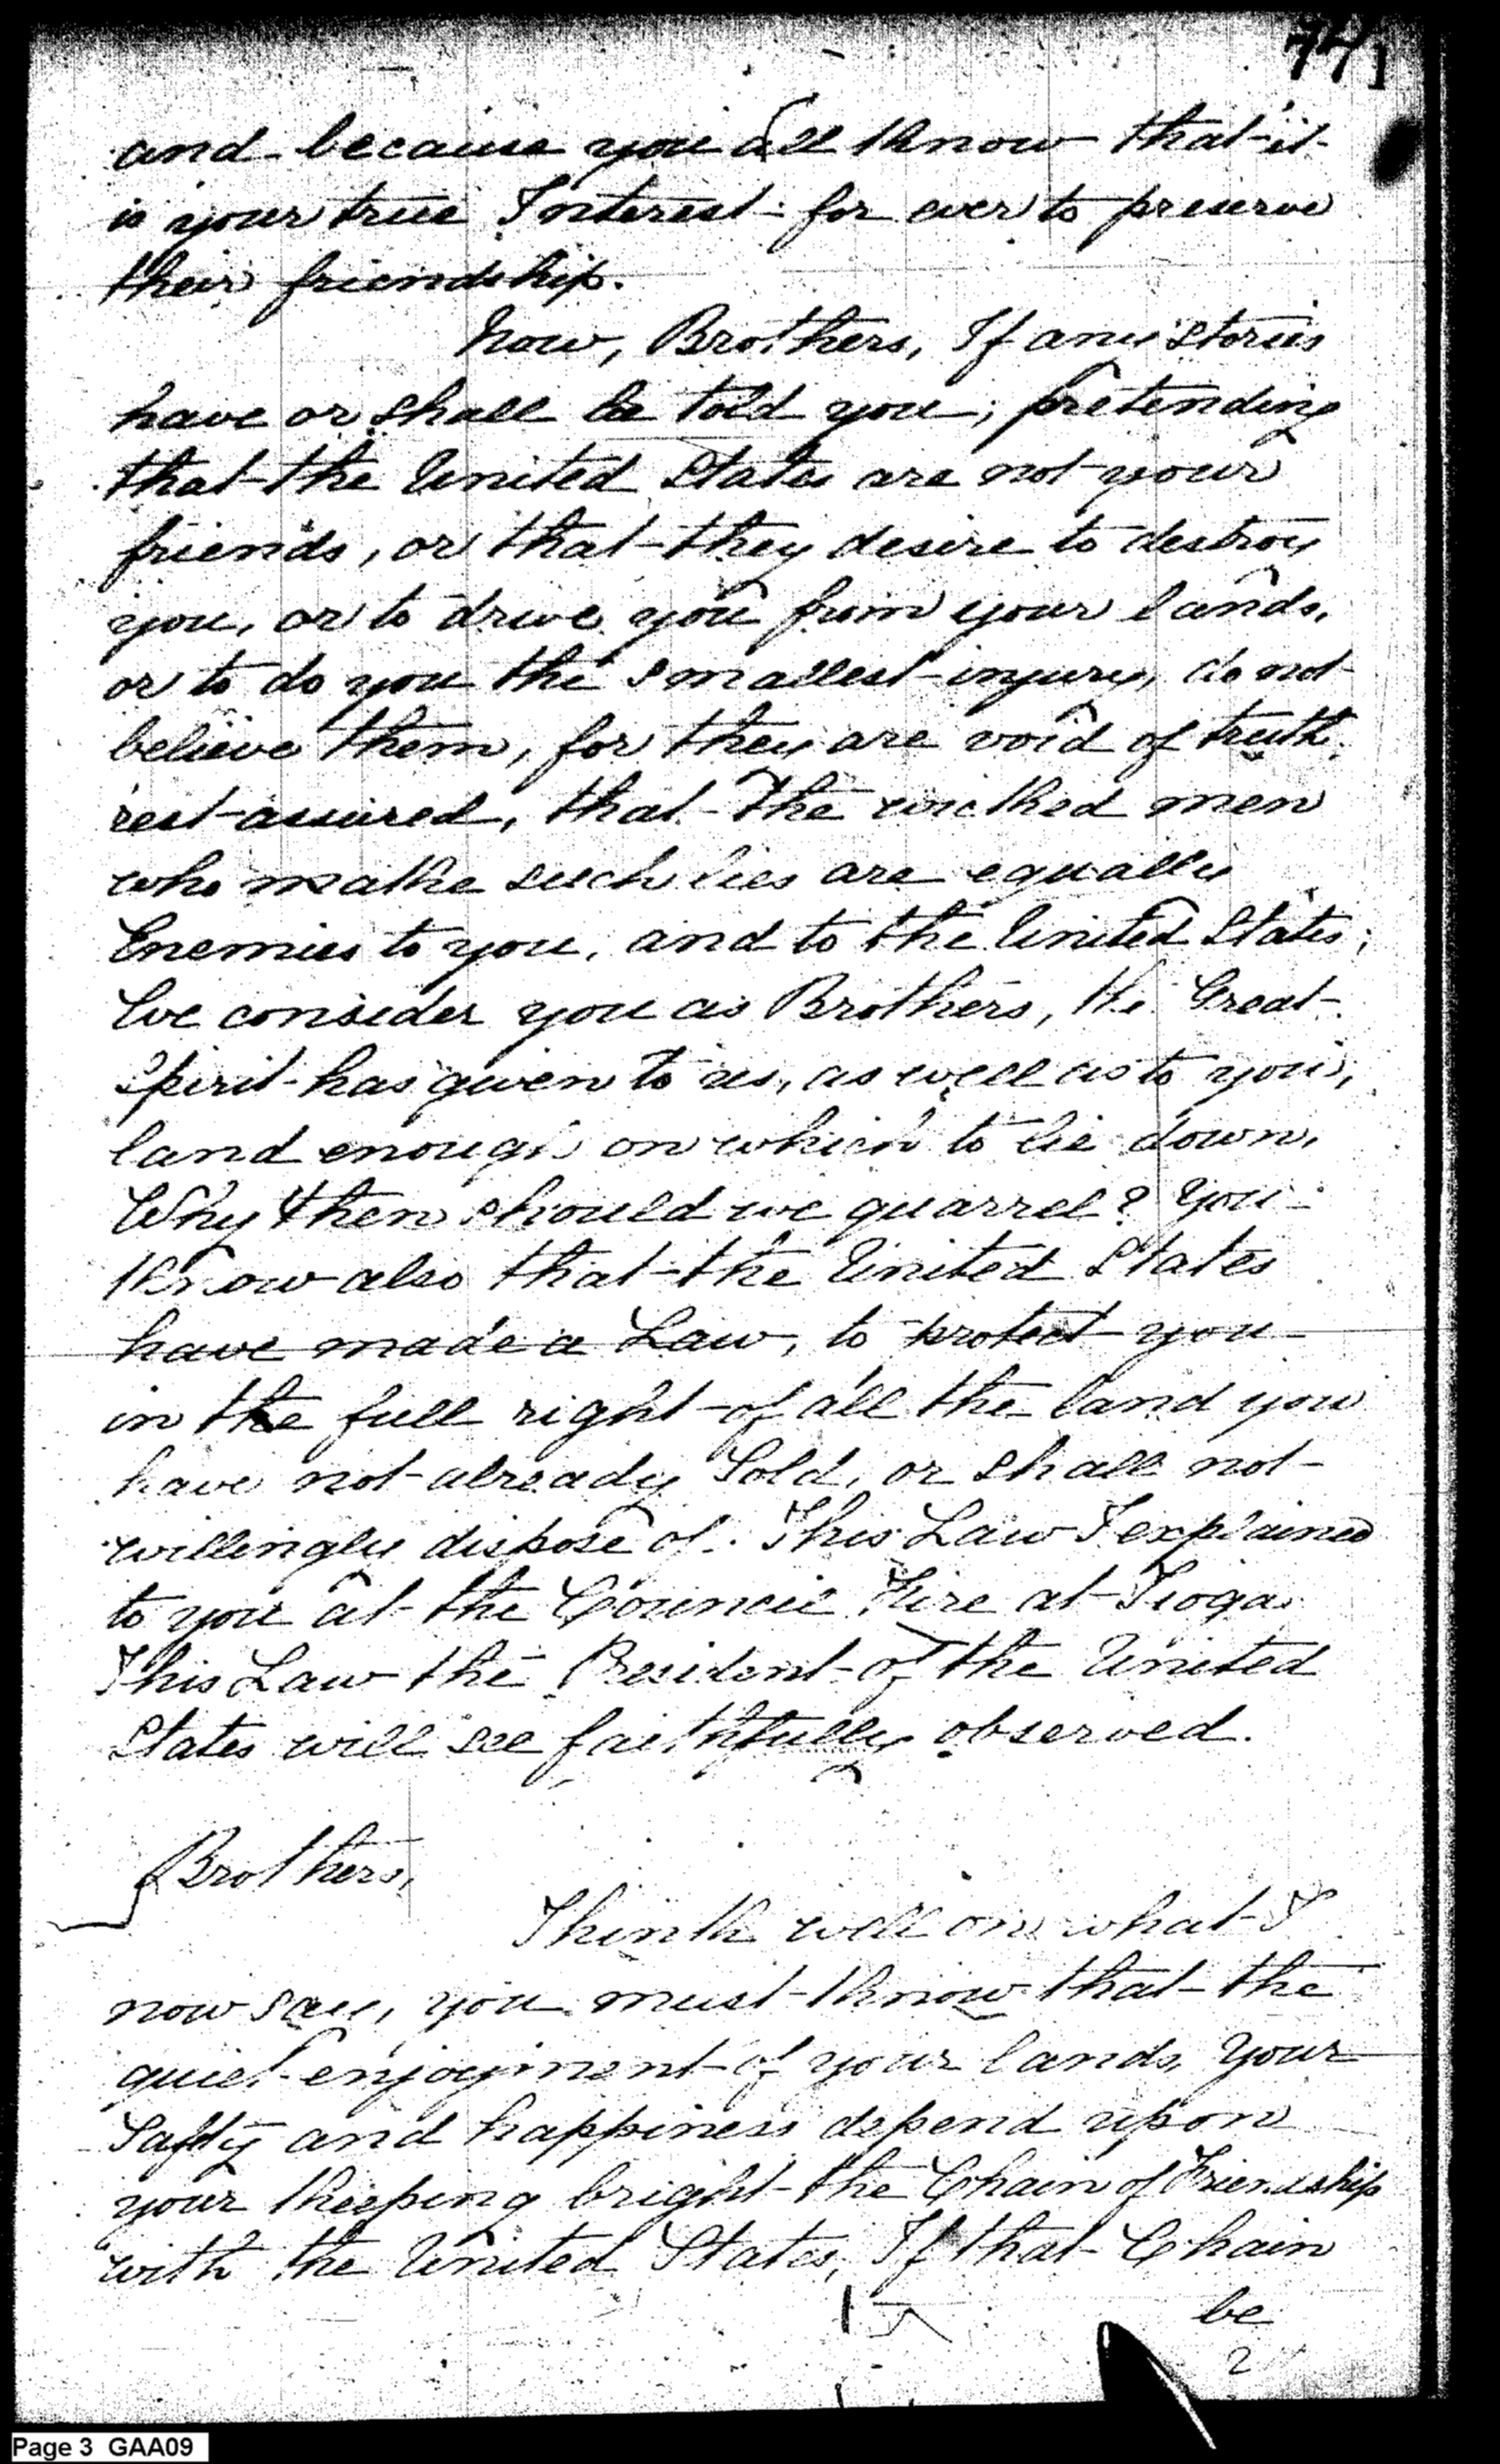 74
and because you all know that it
is your true Interest for ever to preserve
their friendship.
Now, Brothers, If any Stories
have or shall be told you; pretending
that the United States are not your
friends, or that they desire to destroy
you, or to drive you from your lands,
or to do you the smallest injury, do not
believe them, for they are void of truth.
rest assured, that the wicked men
who make such lies are equally
Enemies to you, and to the United States;
We consider you as Brothers, the Great
Spirit has given to us, as well as to you,
land enough on which to lie down,
Why then should we quarrel? You
Know also that the United States
have made a Law, to protect you
in the full right of all the land you
have not already Sold, or shall not
willingly dispose of. This Law I explained
to you at the Council Fire at Tioga.
This Law the President of the United
States will see faithfully observed.
Brothers,
Think well on what I
now say, you must know that the
quiet enjoyment of your lands, Your
Safty and happiness depend upon
your keeping bright the Chain of Friendship
with the United States, If that Chain
be
2
Page 3 GAA09